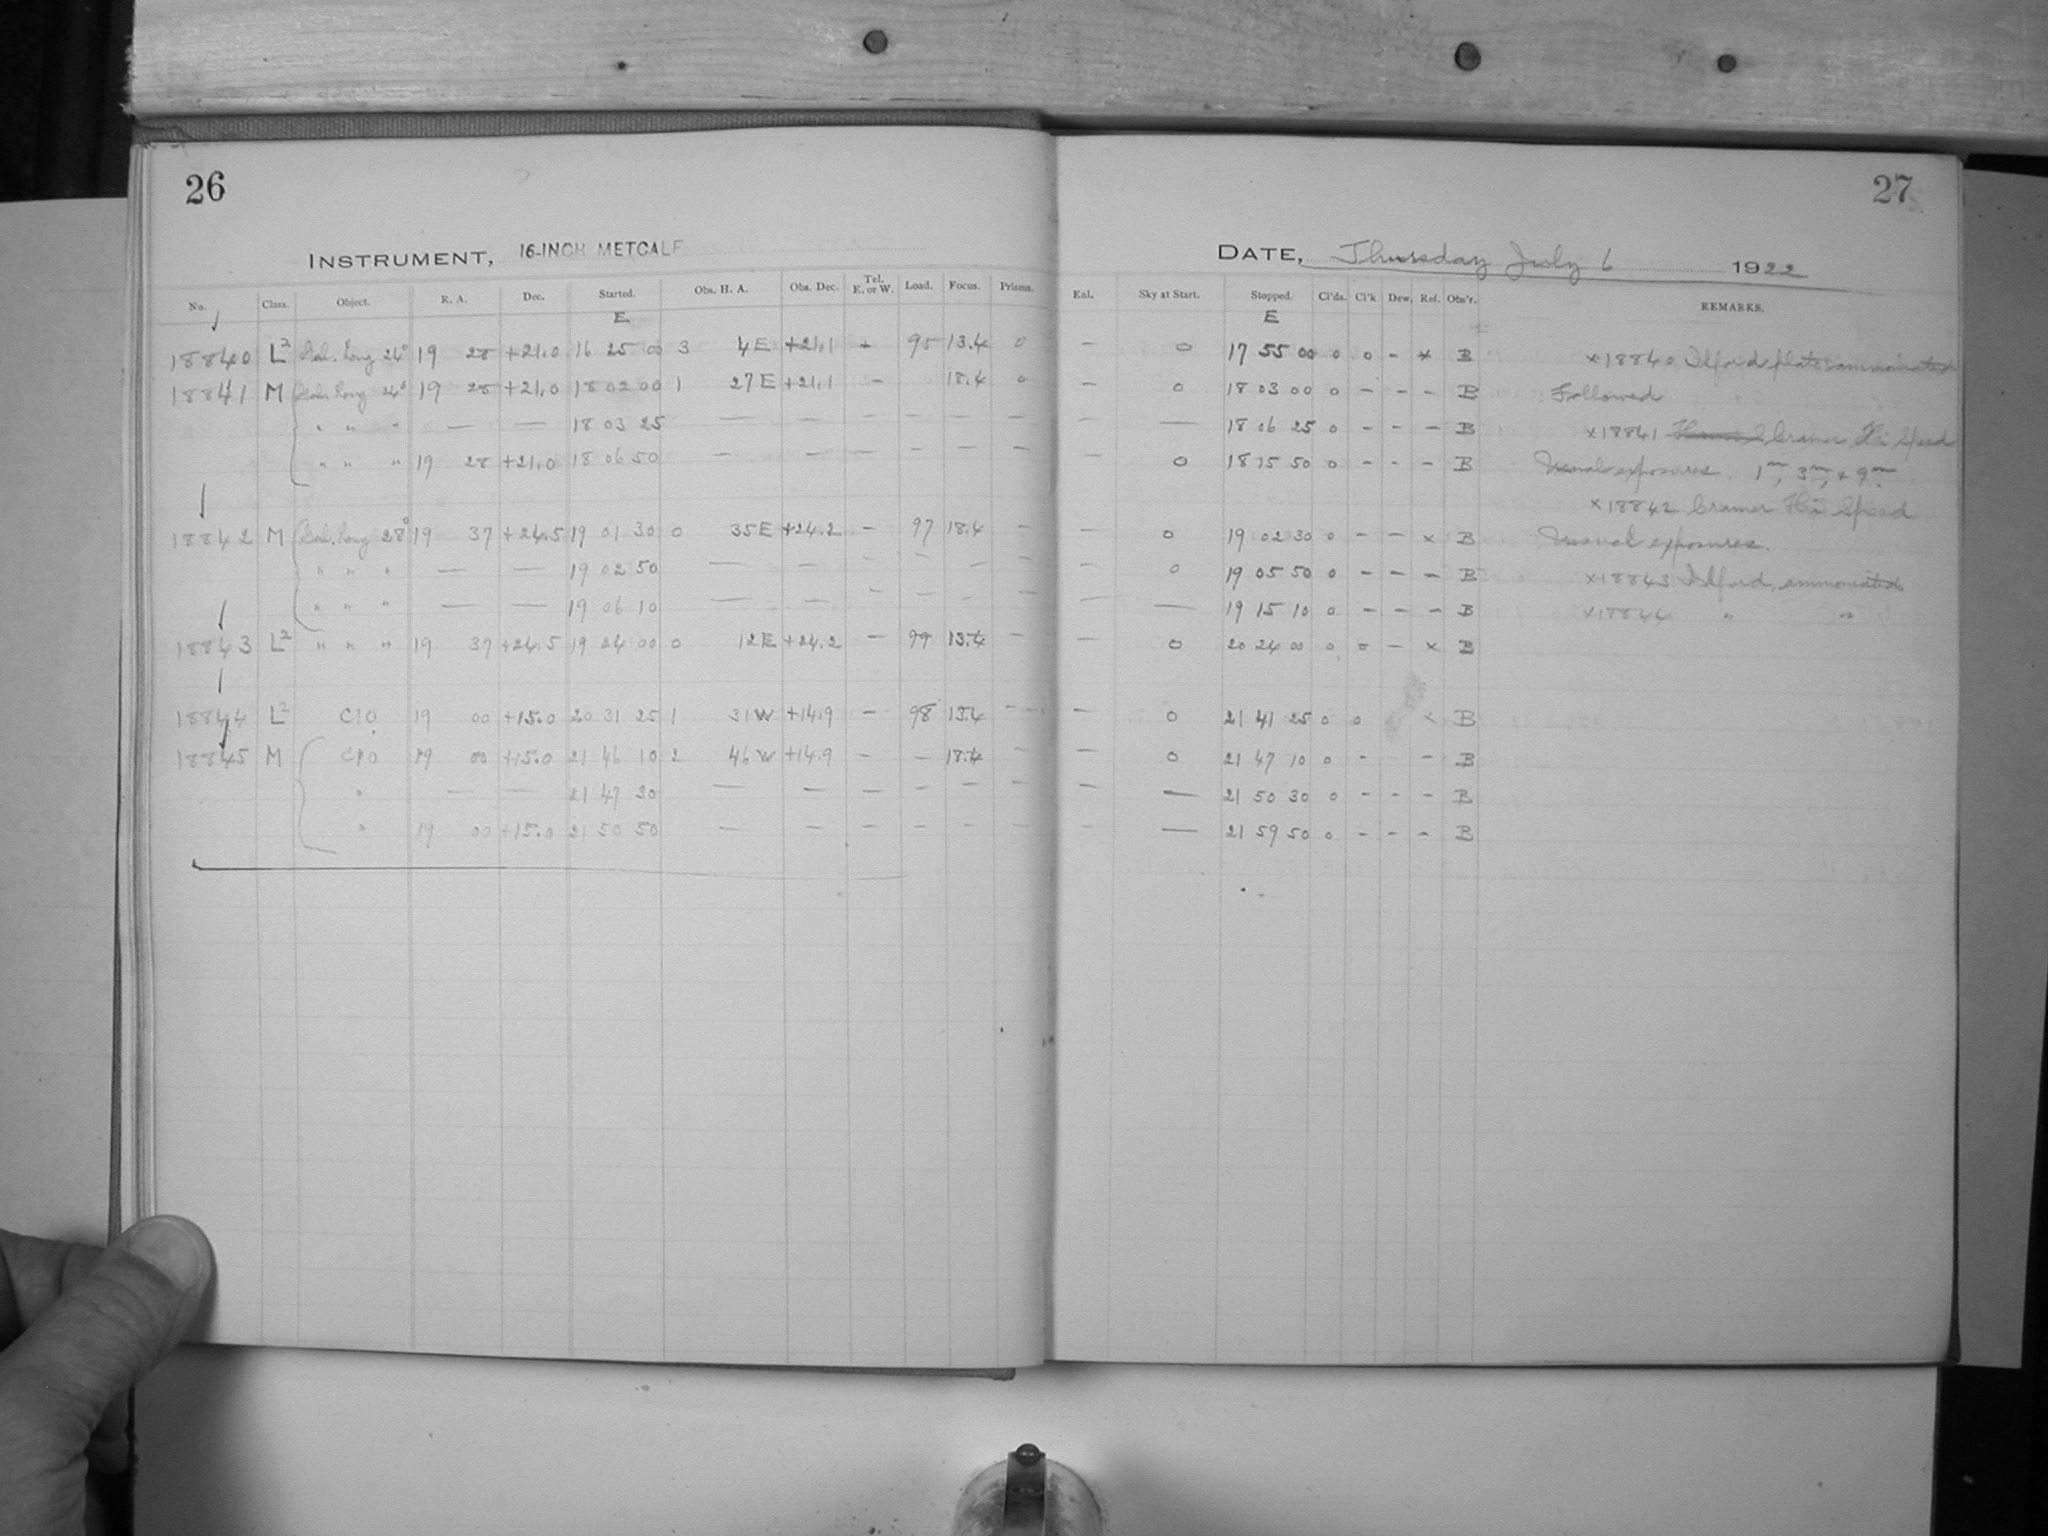 26
INSTRUMENT, 16-INCH METCALF
No. Class. Object. R. A. Dec. Started. Obs. H. A. Obs. Dec. Tel. E. or W. Load. Focus. Prisms.
E
18840 L2 Gal. Long 24° 19 28 +21.0 16 25 00 3 4E +21.1 + 95 13.4 0
18841 M Gal. Long 24° 19 28 +21.0 18 02 00 1 27E +21.1 - 18.4 0
" " " — — 18 03 25 — — - - - -
" " " 19 28 +21.0 18 06 50 — — - - - -
18842 M Gal. Long 28° 19 37 +24.5 19 01 30 0 35E +24.2 - 97 18.4 -
" " " — — 19 02 50 — — - - - -
" " " — — 19 06 10 — — - - - -
18843 L2 " " " 19 37 +24.5 19 24 00 0 12E +24.2 - 99 13.4 -
18844 L2 C10 19 00 +15.0 20 31 25 1 31W +14.9 - 98 13.4 -
18845 M C10 19 00 +15.0 21 46 10 2 46W +14.9 - - 18.4 -
" — — 21 47 30 — — - - - -
" 19 00 +15.0 21 50 50 — — - - - -
27
DATE, Thursday July 6 1922
Enl. Sky at Start. Stopped. Cl'ds. Cl'k Dew. Ref. Obs'r. REMARKS.
E
- 0 17 55 00 0 0 - x B x18840 Ilford plate ammoniated
- 0 18 03 00 0 - - - B Followed
- — 18 06 25 0 - - - B x18841 Cramer Hi Speed
- 0 18 15 50 0 - - - B Usual exposures. 1m, 3m, & 9m.
x18842 Cramer Hi Speed
- 0 19 02 30 0 - - x B Usual exposures.
- 0 19 05 50 0 - - - B x18843 Ilford, ammoniated
- — 19 15 10 0 - - - B x18844 " "
- 0 20 24 00 0 0 - x B
- 0 21 41 25 0 0 x B
- 0 21 47 10 0 - - B
- — 21 50 30 0 - - - B
- — 21 59 50 0 - - - B